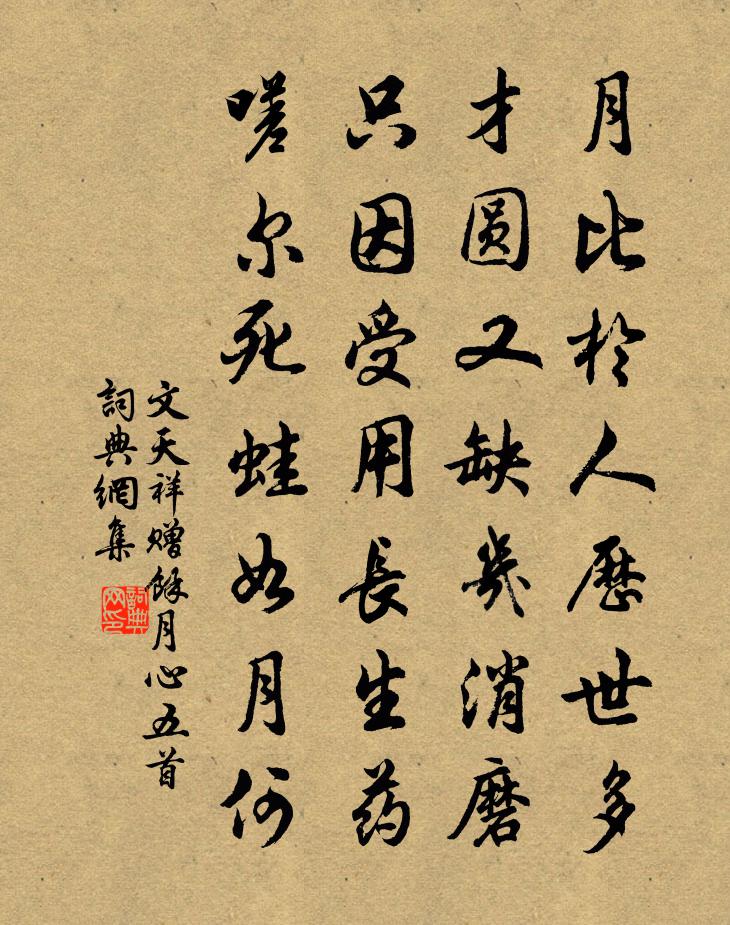 月比於人歷世多
才圓又缺幾消磨
只因受用長生药
嗟尔死蛙如月何
文天祥赠餘月心五首
詞典網集
詞典
网印